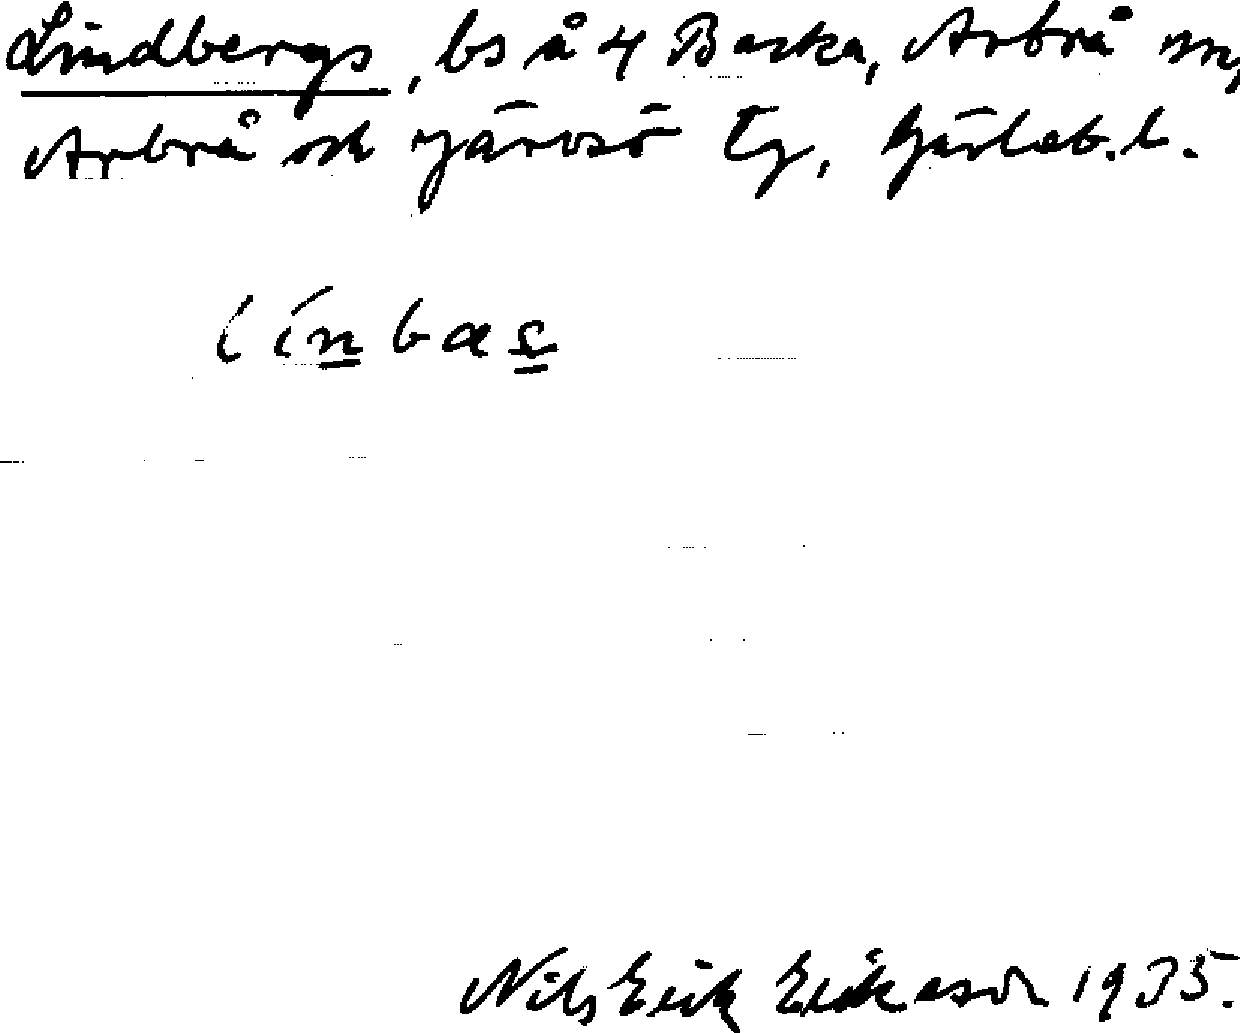 Lindbergs, bs å 4 Backa, Arbrå sn,
Arbrå och Järvsö tg, Gävleb. l.
línbas
Nils Erik Eriksson 1935.